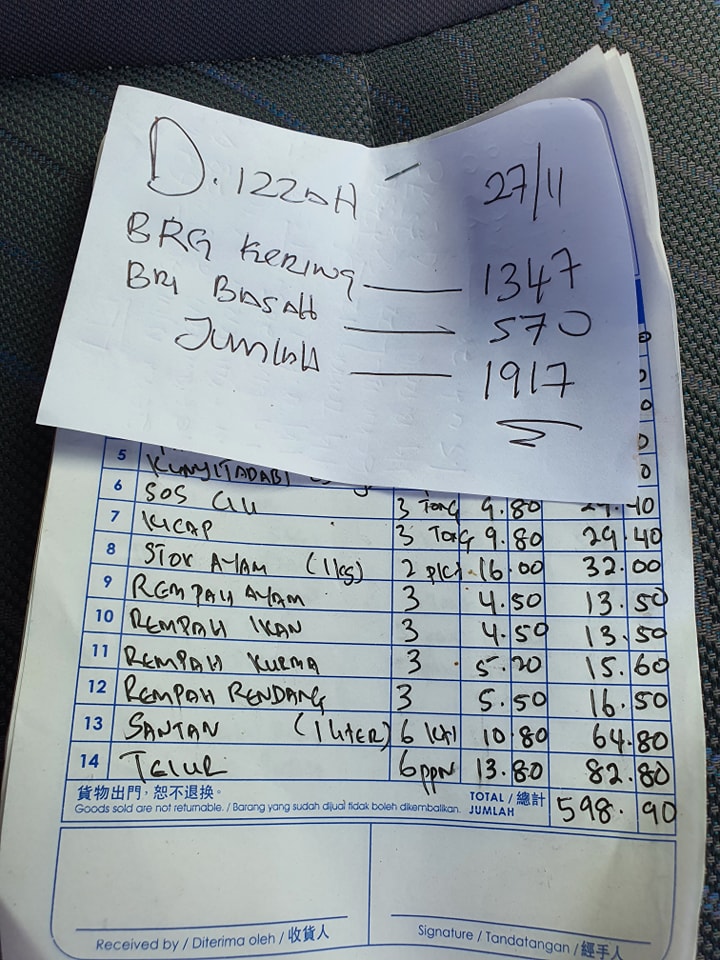 D. IZZAH 27/11
BRG KERING 1347
BRG BASAH 570
JUMLAH 1917
5 KUNYIT ADABI
6 SOS CILI 3 TONG 9.80 29.40
7 KICAP 3 TONG 9.80 29.40
8 STOK AYAM (1kg) 2 pkt 16.00 32.00
9 REMPAH AYAM 3 4.50 13.50
10 REMPAH IKAN 3 4.50 13.50
11 REMPAH KURMA 3 5.20 15.60
12 REMPAH RENDANG 3 5.50 16.50
13 SANTAN (1 LITER) 6 10.80 64.80
14 TELUR 6 ppn 13.80 82.80
貨物出門，恕不退換。 TOTAL / 總計
Goods sold are not returnable. / Barang yang sudah dijual tidak boleh dikembalikan. JUMLAH 598.90
Received by / Diterima oleh / 收貨人 Signature / Tandatangan / 經手人